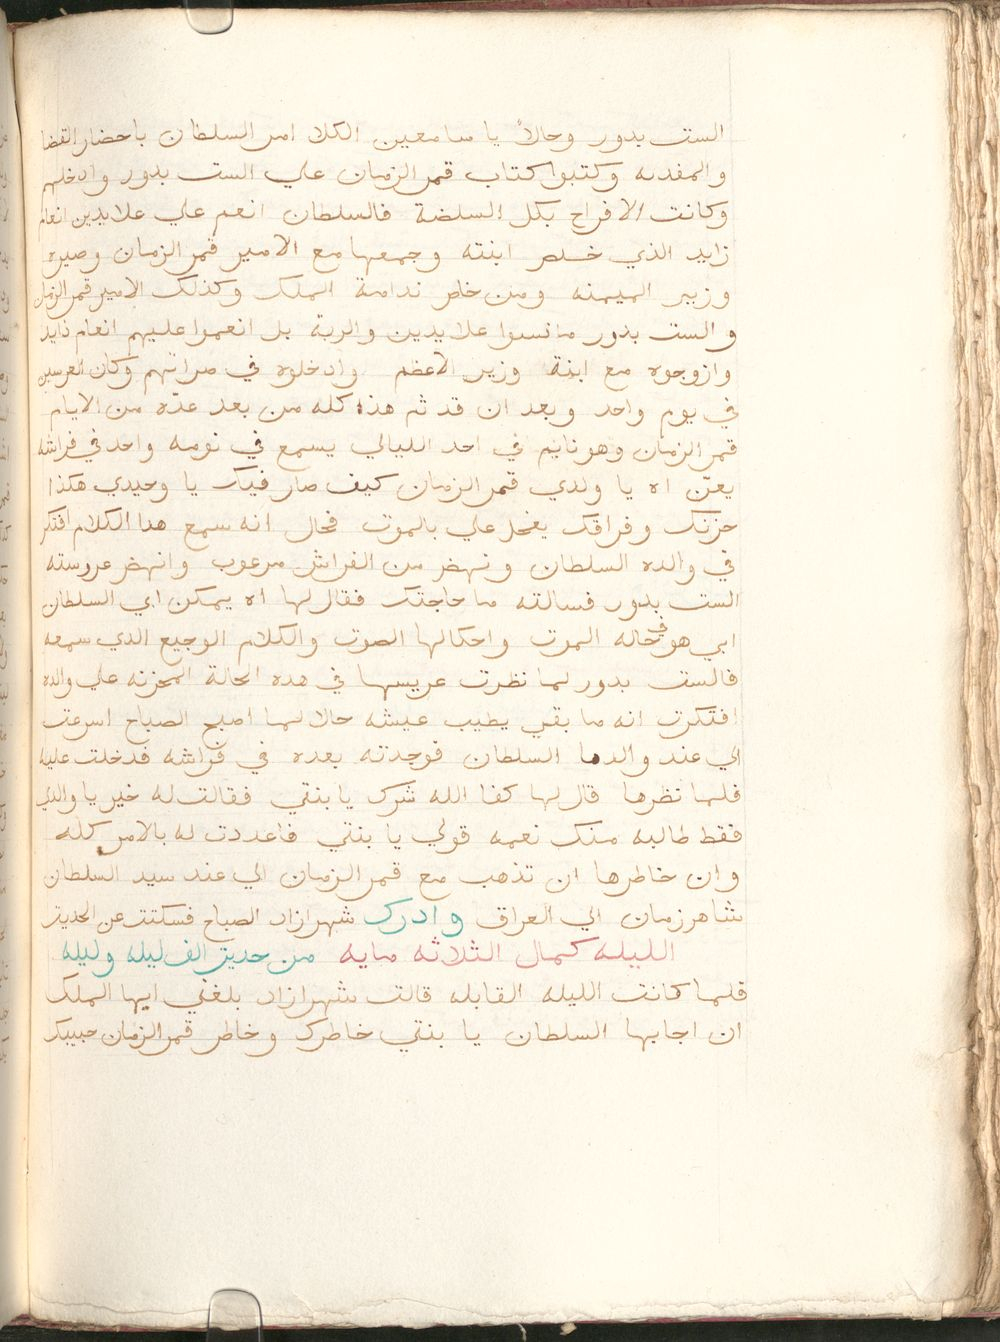 الست بدور وحالاً يا سامعين الكلا امر السلطان باحضار القضا
والمفديه وكتبوا كتاب قمر الزمان علي الست بدور وادخلهم
وكانت الافراح بكل السلضة فالسلطان انعم علي علايدين انعام
زايد الذي خلص ابنته وجمعها مع الامير قمر الزمان وصيره
وزير الميمنه ومن خاص ندامة الملك وكذلك الامير قمر الزمان
والست بدور ما نسوا علايدين والربة بل انعموا عليهم انعام زايد
وازوجوه مع ابنة وزير الاعظم وادخلوه في مراتهم وكان العرسين
في يوم واحد وبعد ان قد تم هذا كله من بعد عدّه من الايام
قمر الزمان وهو نايم في احد الليالي يسمع في نومه واحد في فراشه
يعنّ اه يا ولدي قمر الزمان كيف صار فيك يا وحيدي هكذا
حزنك وفراقك يغحل علي بالموت فحال انه سمع هدا الكلام افتكر
في والده السلطان ونهض من الفراش مرعوب وانهض عروسته
الست بدور فسالته ما حاجتك فقال لها اه يمكن ابي السلطان
ابي هو في حاله الموت واحكالها الصوت والكلام الوجيع الدي سمعه
فالست بدور لما نظرت عريسها في هده الحالة المحزنه علي والده
افتكرت انه ما بقي يطيب عيشه حالا لما اصبح الصباح اسرعت
الي عند والدها السلطان فوجدته بعده في فراشه فدخلت عليه
فلما نظرها قال لها كفا الله شرك يا بنتي فقالت له خير يا والدي
فقط طالبه منك نعمه قولي يا بنتي فاعددت له بالامر كله
وان خاطرها ان تذهب مع قمر الزمان الي عند سيد السلطان
شاهرزمان الي العراق وادرك شهرازاد الصباح فسكتت عن الحديت
الليله كمال الثلاثه مايه من حديت الف ليله وليله
فلما كانت الليله القابله قالت شهرازاد بلغني ايها الملك
ان اجابها السلطان يا بنتي خاطرك وخاطر قمر الزمان حبيبك